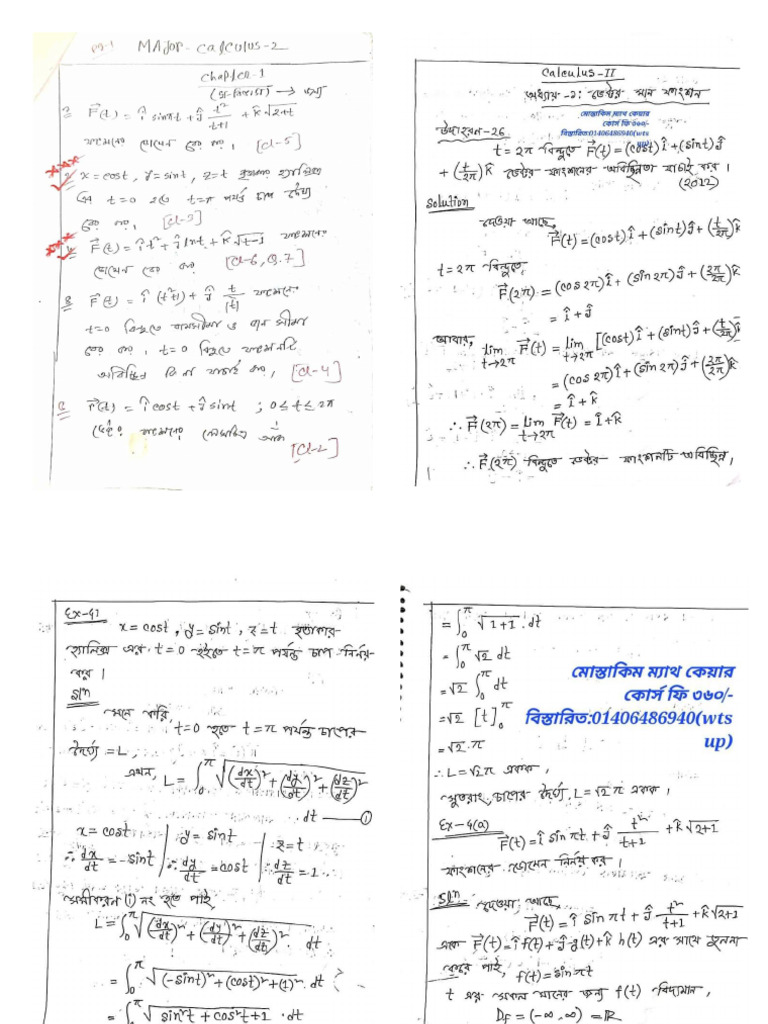 pg-1 Major-Calculus-2
Chapter-1
F⃗(t) = î sinπt + ĵ t²/t+1 + k̂√2+t
ফাংশনের ডোমেন বের কর, [cl-5]
x=cost, y=sint, z=t বৃত্তাকার হ্যালিক্স
এর t=0 হতে t=π পর্যন্ত চাপ দৈর্ঘ্য
বের কর, [cl-3]
F⃗(t) = î t² + ĵ lnt + k̂√t-1 ফাংশনের
ডোমেন বের কর [cl-6, Q.7]
৪ F⃗(t) = î (t²+1) + ĵ t/|t| ফাংশনের
t=0 বিন্দুতে বামসীমা ও ডান সীমা
বের কর, t=0 বিন্দুতে ফাংশনটি
অবিচ্ছিন্ন কি না যাচাই কর, [cl-4]
৫ F⃗(t) = î cost + ĵ sint ; 0≤t≤2π
ভেক্টর ফাংশনের লেখচিত্র আঁক
[cl-2]
Calculus-II
অধ্যায়-১: ভেক্টর মান ফাংশন
মোস্তাকিম ম্যাথ কেয়ার
কোর্স ফি ৩৬০/-
বিস্তারিত:01406486940(wts
up)
উদাহরন-26
t=2π বিন্দুতে F⃗(t) = (cost)î + (sint)ĵ
+ (t/2π)k̂ ভেক্টর ফাংশনের অবিচ্ছিন্নতা যাচাই কর।
(2012)
Solution
দেওয়া আছে,
F⃗(t) = (cost)î + (sint)ĵ + (t/2π)k̂
t=2π বিন্দুতে,
F⃗(2π) = (cos2π)î + (sin2π)ĵ + (2π/2π)k̂
= î + ĵ
আবার, lim t→2π F⃗(t) = lim t→2π [(cost)î + (sint)ĵ + (t/2π)
= (cos2π)î + (sin2π)ĵ + (2π/2π)k̂
= î + k̂
∴ F⃗(2π) = lim t→2π F⃗(t) = î + k̂
∴ F⃗(2π) বিন্দুতে ভেক্টর ফাংশনটি অবিচ্ছিন্ন,
Ex-41
x=cost, y=sint, z=t বৃত্তাকার
হ্যালিক্স এর t=0 হইতে t=π পর্যন্ত চাপ নির্নয়
কর।
Slⁿ
মনে করি,
t=0 হতে t=π পর্যন্ত চাপের
দৈর্ঘ্য = L,
এখন, L = ∫₀^π √(dx/dt)² + (dy/dt)² + (dz/dt)²
dt — (i)
x = cost | y = sint | z = t
∴ dx/dt = -sint | ∴ dy/dt = cost | ∴ dz/dt = 1
সমীকরন (i) নং হতে পাই,
L = ∫₀^π √(dx/dt)² + (dy/dt)² + (dz/dt)² dt
= ∫₀^π √(-sint)² + (cost)² + (1)² · dt
= ∫₀^π √sin²t + cos²t + 1 · dt
= ∫₀^π √1+1 · dt
= ∫₀^π √2 dt
= √2 ∫₀^π dt
= √2 [t]₀^π
= √2 · π
মোস্তাকিম ম্যাথ কেয়ার
কোর্স ফি ৩৬০/-
বিস্তারিত:01406486940(wts
up)
∴ L = √2π একক,
সুতরাং, চাপের দৈর্ঘ্য, L = √2 π একক।
Ex-4(a)
F⃗(t) = î sinπt + ĵ t²/t+1 + k̂√2+1
ফাংশনের ডোমেন নির্নয় কর।
Slⁿ
দেওয়া আছে,
F⃗(t) = î sinπt + ĵ t²/t+1 + k̂√2+1
একে F⃗(t) = î f(t) + ĵ g(t) + k̂ h(t) এর সাথে তুলনা
করে পাই, f(t) = sinπt
t এর সকল মানের জন্য f(t) বিদ্যমান,
Df = (-∞, ∞) = ℝ